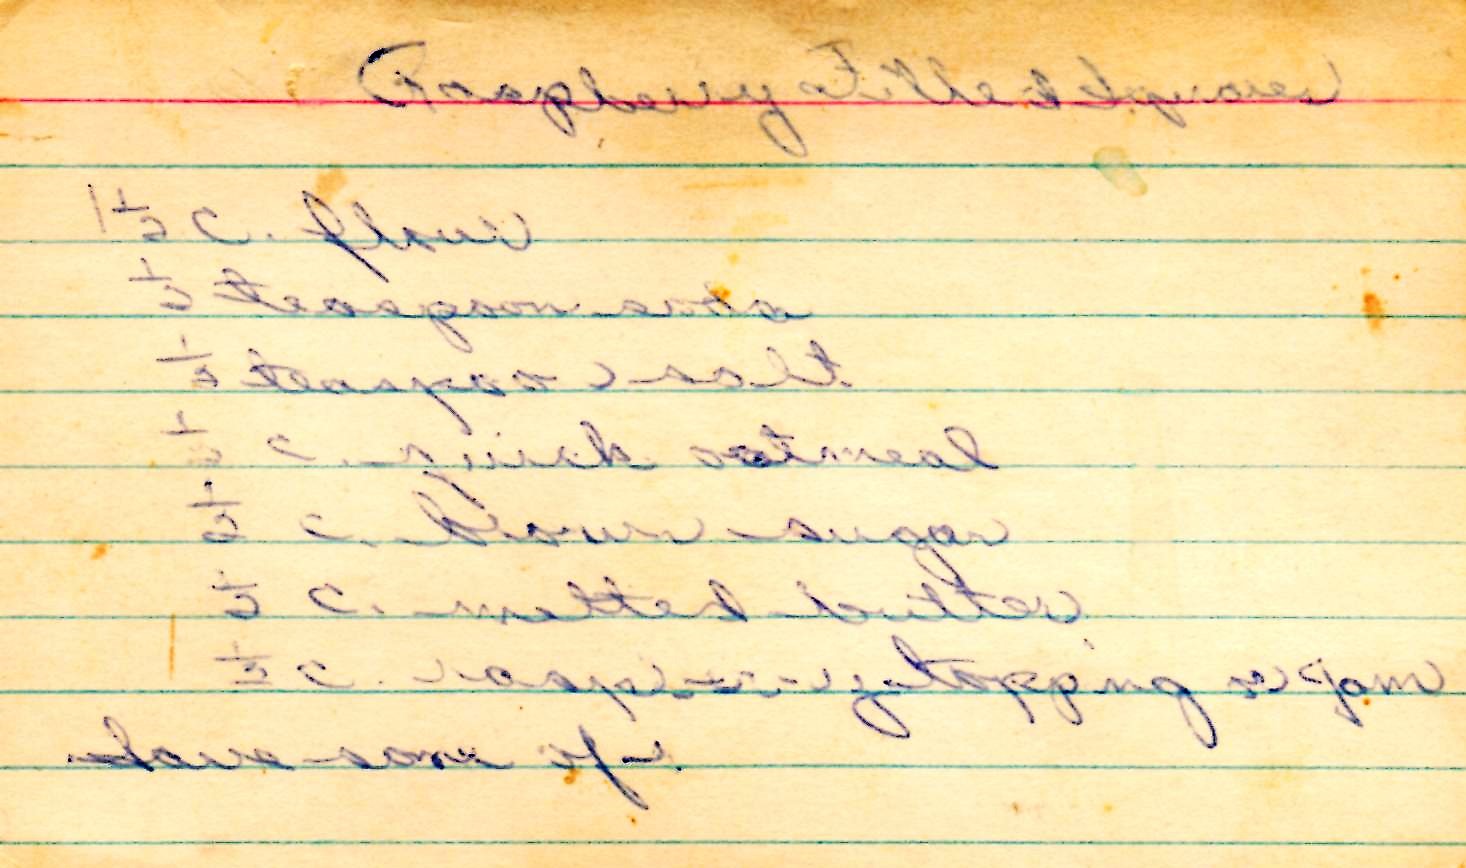 Raspberry
1 1/2 c. flour
1/2 teaspoon soda
1/2 teaspoon salt
1/2 c. quick oatmeal
1/2 c. brown sugar
1/2 c. melted butter
1/2 c. raspberry topping or jam